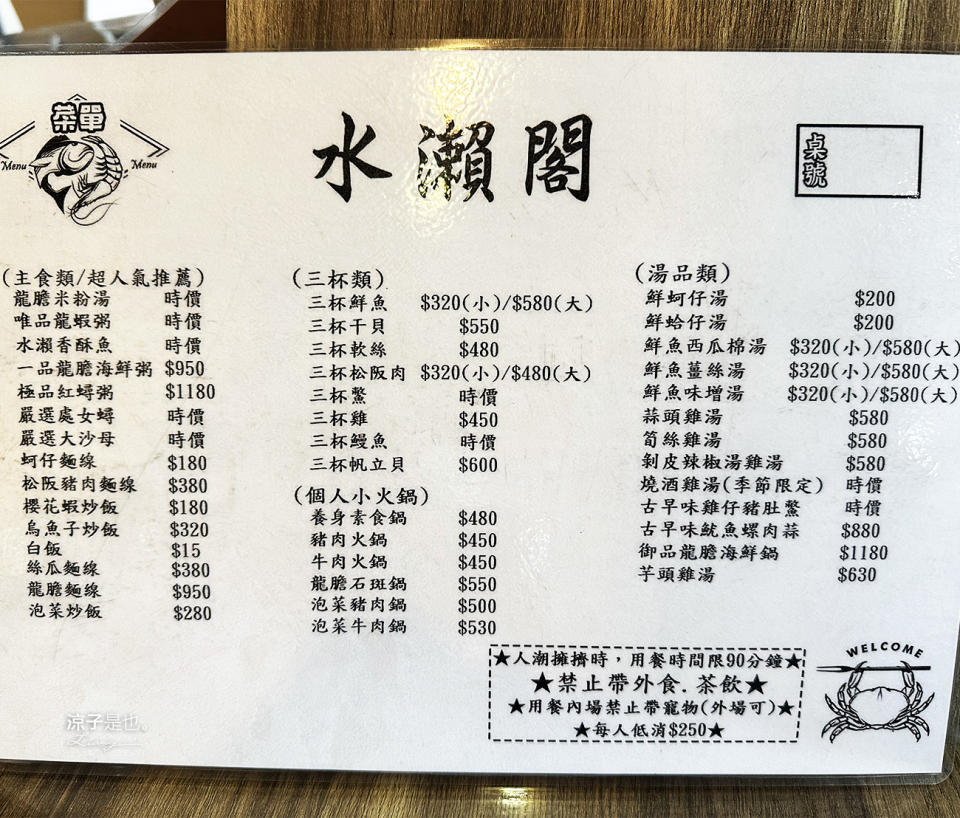 菜單
Menu Menu
水瀨閣
桌號
(主食類/超人氣推薦)
龍膽米粉湯 時價
唯品龍蝦粥 時價
水瀨香酥魚 時價
一品龍膽海鮮粥 $950
極品紅蟳粥 $1180
嚴選處女蟳 時價
嚴選大沙母 時價
蚵仔麵線 $180
松阪豬肉麵線 $380
櫻花蝦炒飯 $180
烏魚子炒飯 $320
白飯 $15
絲瓜麵線 $380
龍膽麵線 $950
泡菜炒飯 $280
(三杯類)
三杯鮮魚 $320(小)/$580(大)
三杯干貝 $550
三杯軟絲 $480
三杯松阪肉 $320(小)/$480(大)
三杯鱉 時價
三杯雞 $450
三杯鰻魚 時價
三杯帆立貝 $600
(個人小火鍋)
養身素食鍋 $480
豬肉火鍋 $450
牛肉火鍋 $450
龍膽石斑鍋 $550
泡菜豬肉鍋 $500
泡菜牛肉鍋 $530
(湯品類)
鮮蚵仔湯 $200
鮮蛤仔湯 $200
鮮魚西瓜棉湯 $320(小)/$580(大)
鮮魚薑絲湯 $320(小)/$580(大)
鮮魚味增湯 $320(小)/$580(大)
蒜頭雞湯 $580
筍絲雞湯 $580
剝皮辣椒湯雞湯 $580
燒酒雞湯(季節限定) 時價
古早味雞仔豬肚鱉 時價
古早味魷魚螺肉蒜 $880
御品龍膽海鮮鍋 $1180
芋頭雞湯 $630
★人潮擁擠時，用餐時間限90分鐘★
★禁止帶外食.茶飲★
★用餐內場禁止帶寵物(外場可)★
★每人低消$250★
WELCOME
涼子是也